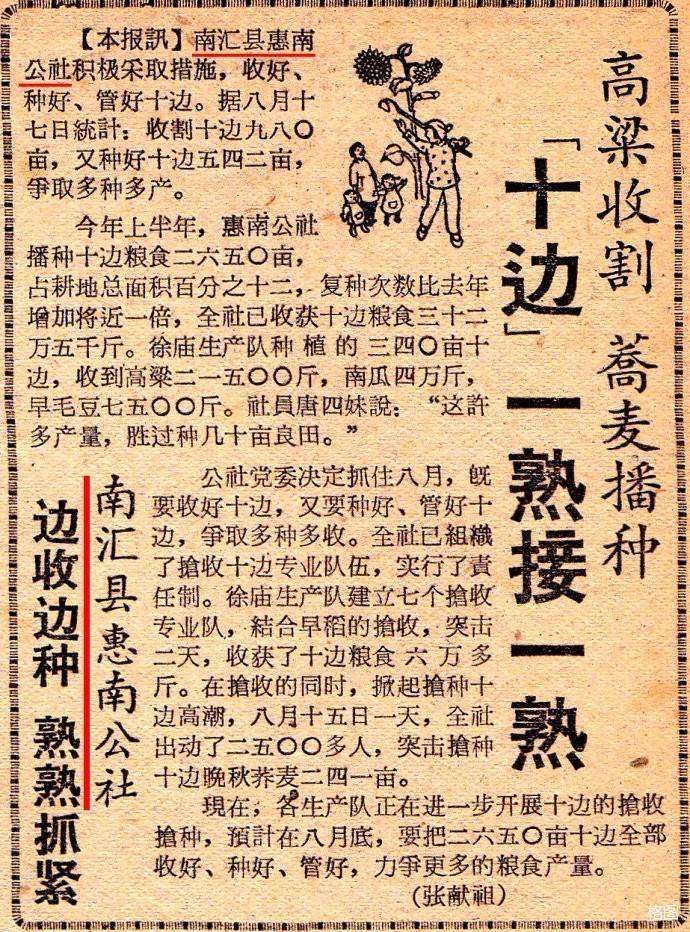 高粱收割 蕎麦播种
「十边」一熟接一熟
南汇县惠南公社
边收边种 熟熟抓紧
【本报訊】南汇县惠南
公社积极采取措施，收好、
种好、管好十边。据八月十
七日統計：收割十边九八〇
亩，又种好十边五四二亩，
爭取多种多产。
今年上半年，惠南公社
播种十边粮食二六五〇亩，
占耕地总面积百分之十二，复种次数比去年
增加将近一倍，全社已收获十边粮食三十二
万五千斤。徐庙生产队种植的三四〇亩十
边，收到高粱二一五〇〇斤，南瓜四万斤，
早毛豆七五〇〇斤。社員唐四妹說：“这許
多产量，胜过种几十亩良田。”
公社党委决定抓住八月，旣
要收好十边，又要种好、管好十
边，爭取多种多收。全社已組織
了搶收十边专业队伍，实行了責
任制。徐庙生产队建立七个搶收
专业队，結合早稻的搶收，突击
二天，收获了十边粮食六万多
斤。在搶收的同时，掀起搶种十
边高潮，八月十五日一天，全社
出动了二五〇〇多人，突击搶种
十边晚秋荞麦二四一亩。
現在，各生产队正在进一步开展十边的搶收
搶种，預計在八月底，要把二六五〇亩十边全部
收好、种好、管好，力爭更多的粮食产量。
（张献祖）